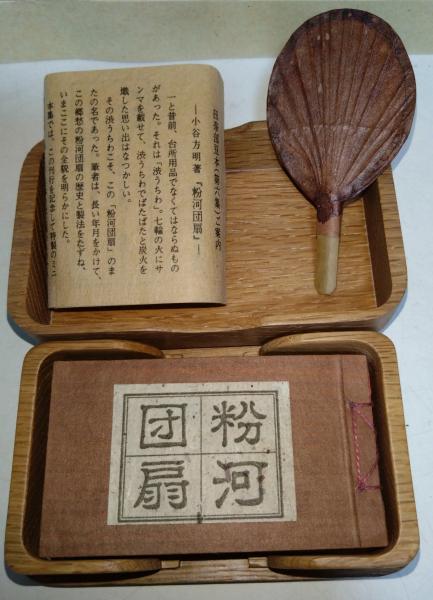 田奈部豆本(第六集)ご案内
—小谷方明著『粉河団扇』—
一と昔前、台所用品でなくてはならぬもの
があった。それは「渋うちわ」。七輪の火にサ
ンマを載せて、渋うちわでばたばたと炭火を
熾した思い出はなつかしい。
その渋うちわこそ、この「粉河団扇」のま
たの名であった。筆者は、長い年月をかけて、
この郷愁の粉河団扇の歴史と製法をたずね、
いまここにその全貌を明らかにした。
本集では、この刊行を記念して特製のミニ
粉河
団扇